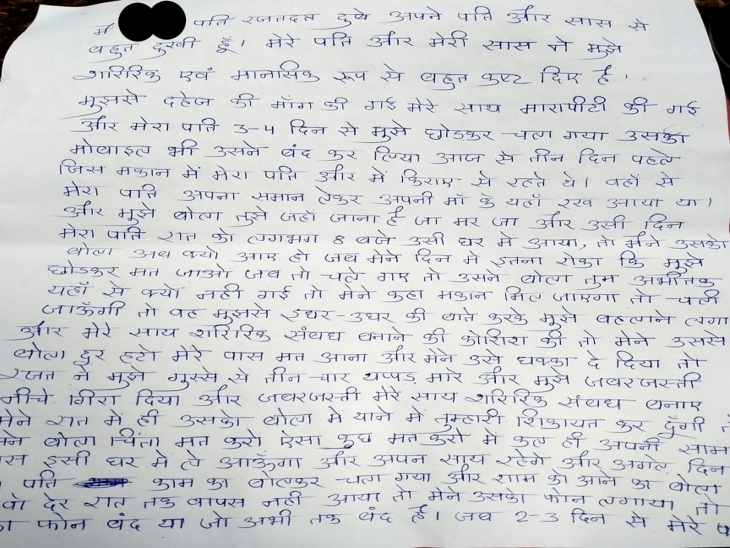 मैं पति रजतदत्त दुबे अपने पति और सास से
बहुत दुखी हूँ। मेरे पति और मेरी सास ने मुझे
शारिरिक एवं मानसिक रूप से बहुत कष्ट दिए है।
मुझसे दहेज की माँग की गई मेरे साथ मारापीटी की गई
और मेरा पति 3-4 दिन से मुझे छोडकर चला गया उसका
मोबाइल भी उसने बंद कर लिया आज से तीन दिन पहले
जिस मकान में मेरा पति और में किराए से रहते थे। वहाँ से
मेरा पति अपना समान लेकर अपनी माँ के यहाँ रख आया था।
और मुझे बोला तुझे जहाँ जाना है जा मर जा और उसी दिन
मेरा पति रात को लगभग 8 बजे उसी घर में आया, तो मैंने उसको
बोला अब क्यो आए हो जब मेने दिन में इतना रोका कि मुझे
छोडकर मत जाओ जब तो चले गए तो उसने बोला तुम अभीतक
यहाँ से क्यो नही गई तो मेने कहा मकान मिल जाएगा तो चली
जाऊँगी तो वह मुझसे इधर-उधर की बाते करके मुझे बहलाने लगा
और मेरे साथ शारिरिक संबध बनाने की कोशिश की तो मेने उससे
बोला दूर हटो मेरे पास मत आना और मेने उसे धक्का दे दिया तो
रजत ने मुझे गुस्से से तीन-चार थप्पड मारे और मुझे जबरजस्ती
नीचे गिरा दिया और जबरजस्ती मेरे साथ शारिरिक संबध बनाए
मेने रात में ही उसको बोला मे थाने मे तुम्हारी शिकायत कर दूँगी
बोला चिंता मत करो ऐसा कुछ मत करो मे कल ही अपनी
इसी घर मे ले आऊँगा और अपन साथ रहेगे और अगले दिन
पति काम का बोलकर चला गया और शाम को आने का बोला
देर रात तक वापस नही आया तो मेने उसको फोन लगाया तो
फोन बंद था जो अभी तक बंद है। जब 2-3 दिन से मेरे